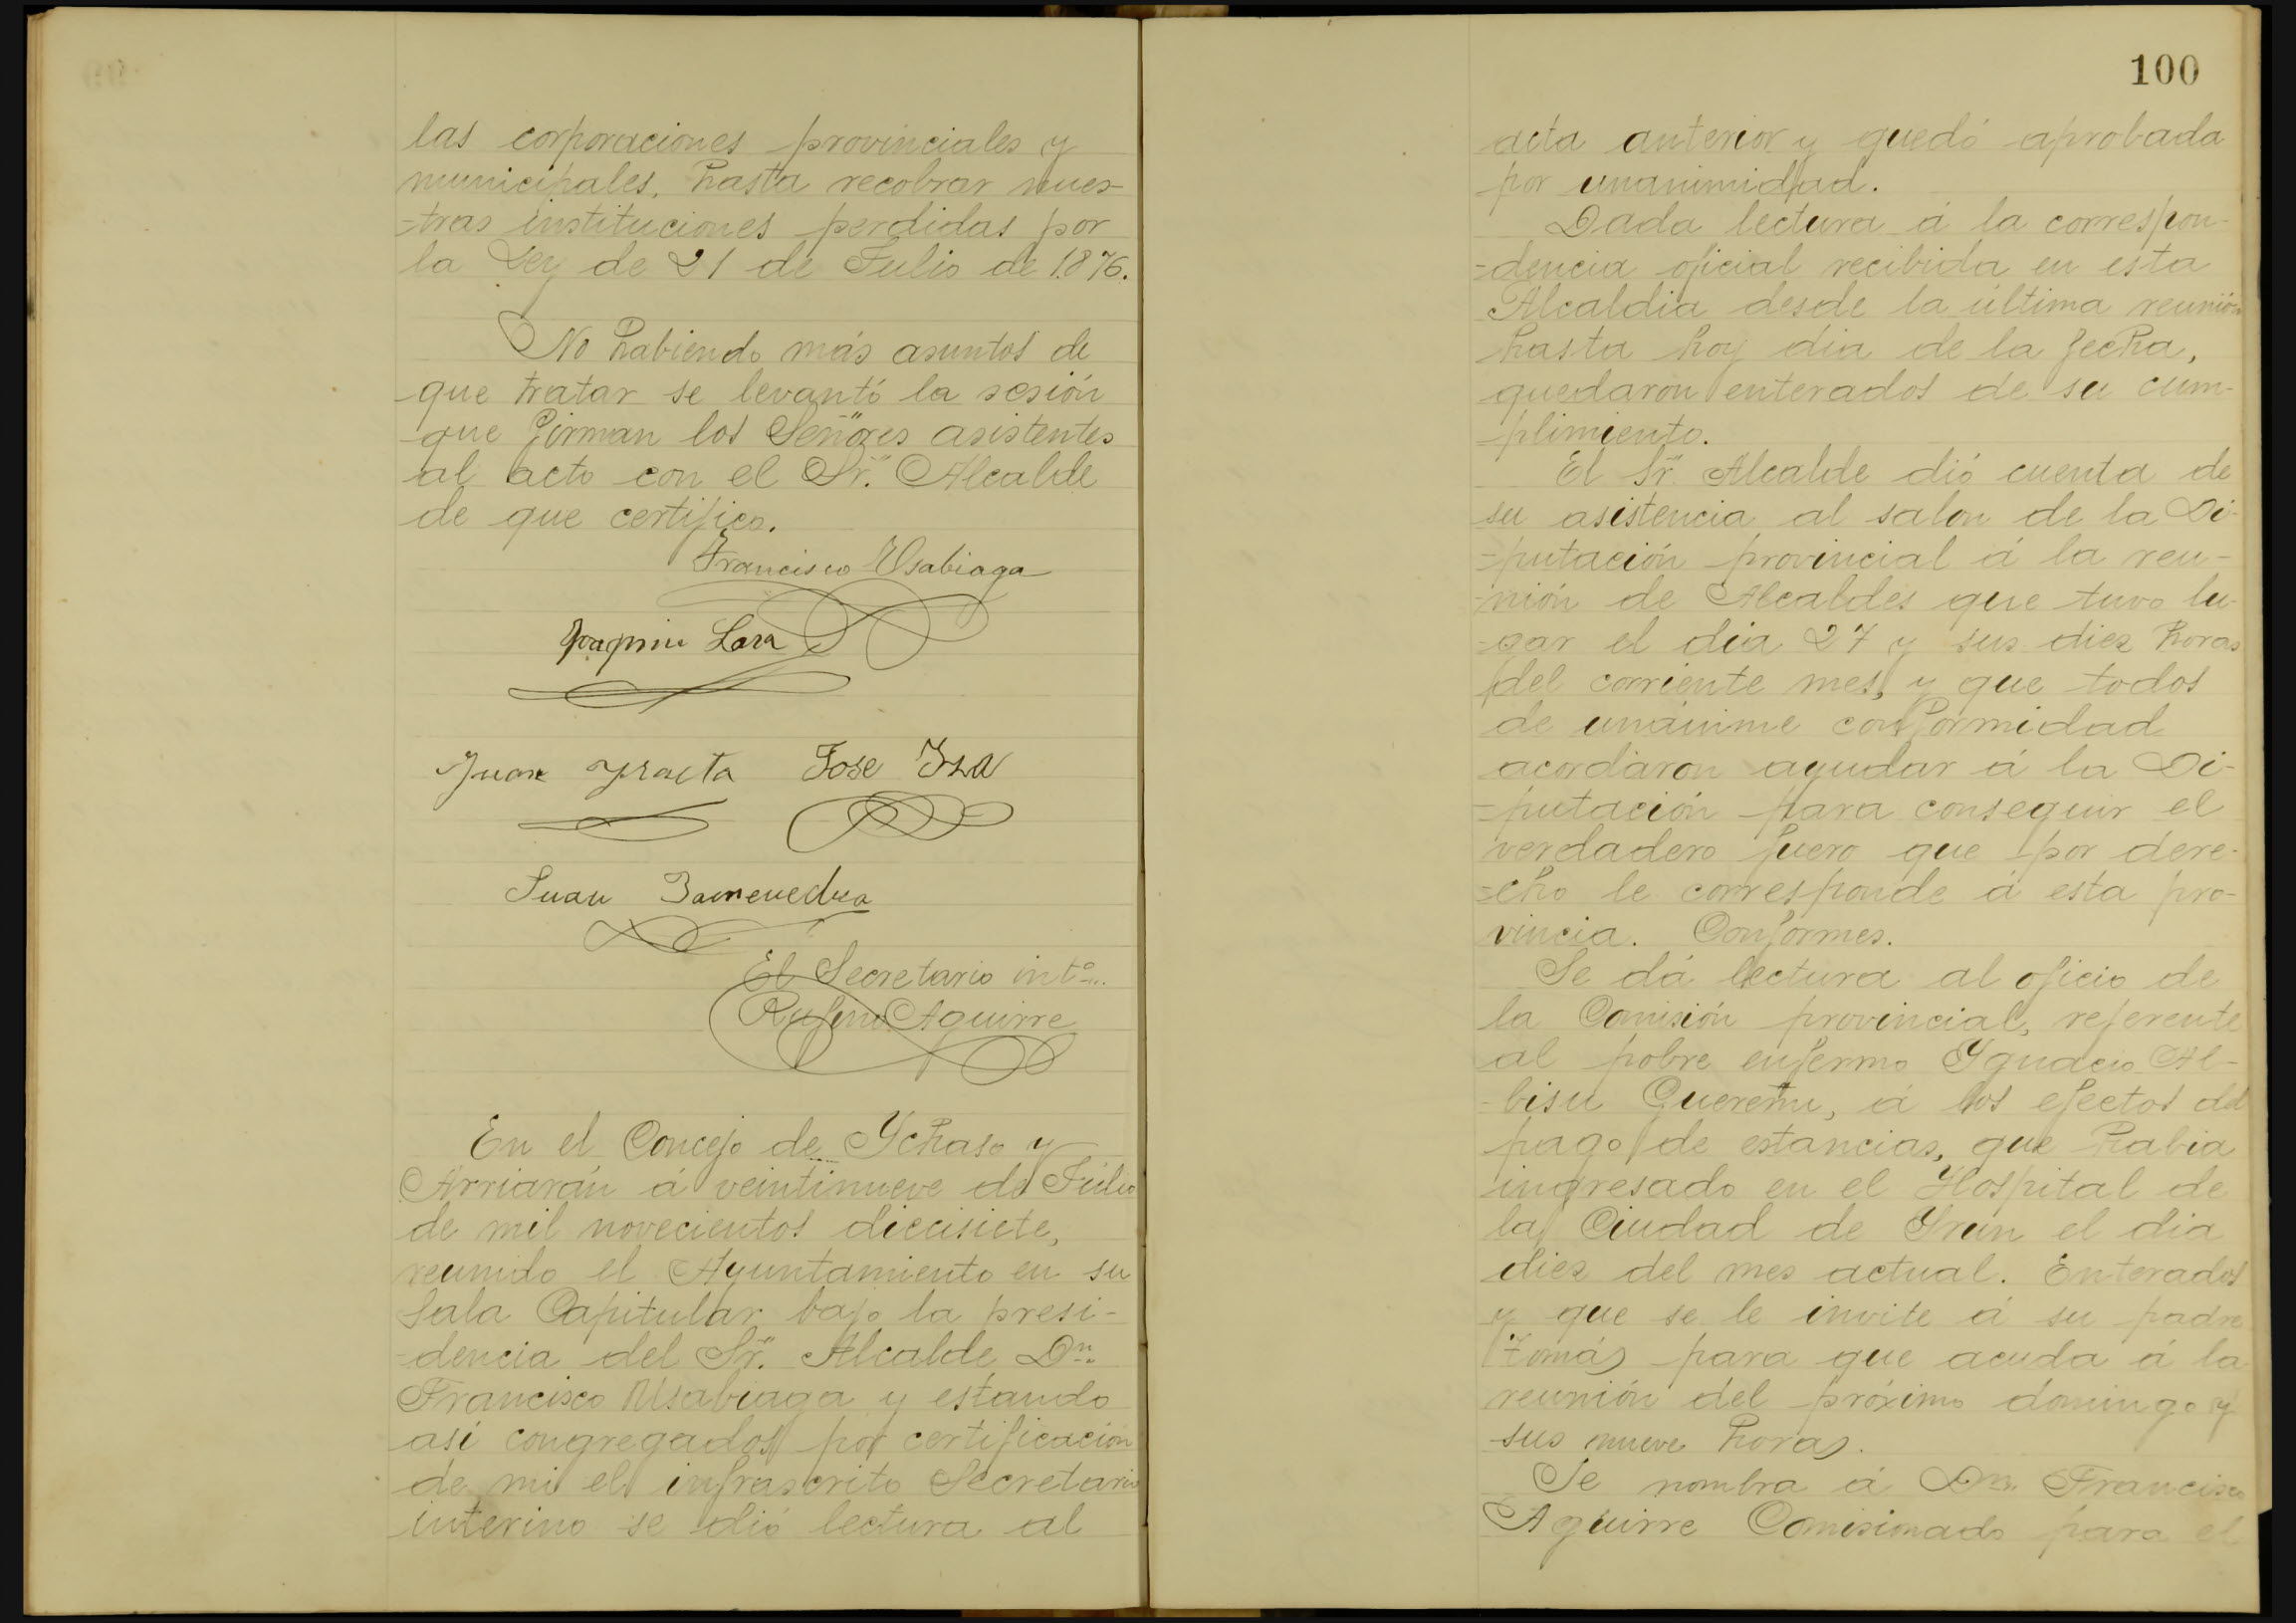 las corporaciones provinciales y
municipales, hasta recobrar nues-
-tras instituciones perdidas por
la Ley de 21 de Julio de 1.876.
No habiendo más asuntos de
que tratar se levantó la sesión
que firman los Señores asistentes
al acto con el Sr. Alcalde
de que certifico.
Francisco Usabiaga
Joaquin Lasa
Juan José Isa
Juan
El Secretario intº
Rufino Aguirre
En el Concejo de Ychaso y
Arriarán á veintinueve de Júlio
de mil novecientos diecisiete,
reunido el Ayuntamiento en su
Sala Capitular bajo la presi-
-dencia del Sr. Alcalde Dn.
Francisco Usabiaga y estando
asi congregados por certificación
de mi el infrascrito Secretario
interino se dió lectura al
100
acta anterior y quedó aprobada
por unanimidad.
Dada lectura á la correspon-
=dencia oficial recibida en esta
Alcaldia desde la última reunión
hasta hoy dia de la fecha,
quedaron enterados de su cum-
=plimiento.
El Sr. Alcalde dió cuenta de
su asistencia al salon de la Di-
=putación provincial á la reu-
-nión de Alcaldes que tuvo lu-
-gar el dia 27 y sus diez horas
del corriente mes, y que todos
de unánime conformidad
acordaron ayudar á la Di-
=putación para conseguir el
verdadero fuero que por dere-
=cho le corresponde á esta pro-
vincia. Conformes.
Se dá lectura al oficio de
la Comisión provincial, referente
al pobre enfermo Ygnacio Al-
-bisu Querenu, á los efectos del
pago de estancias, que habia
ingresado en el Hospital de
la Ciudad de Yrun el dia
diez del mes actual. Enterados
y que se le invite á su padre
Tomás para que acuda á la
reunión del próximo domingo y
sus nueve horas.
Se nombra á Dn. Francisco
Aguirre Comisionado para el